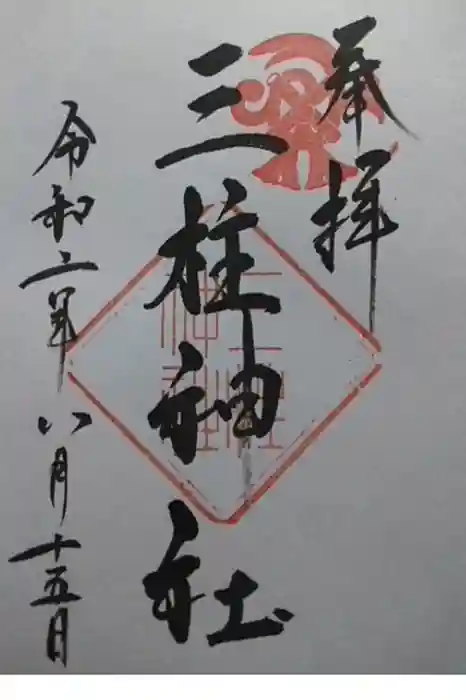 奉拝
三柱神社
令和二年八月十五日
三柱
神社